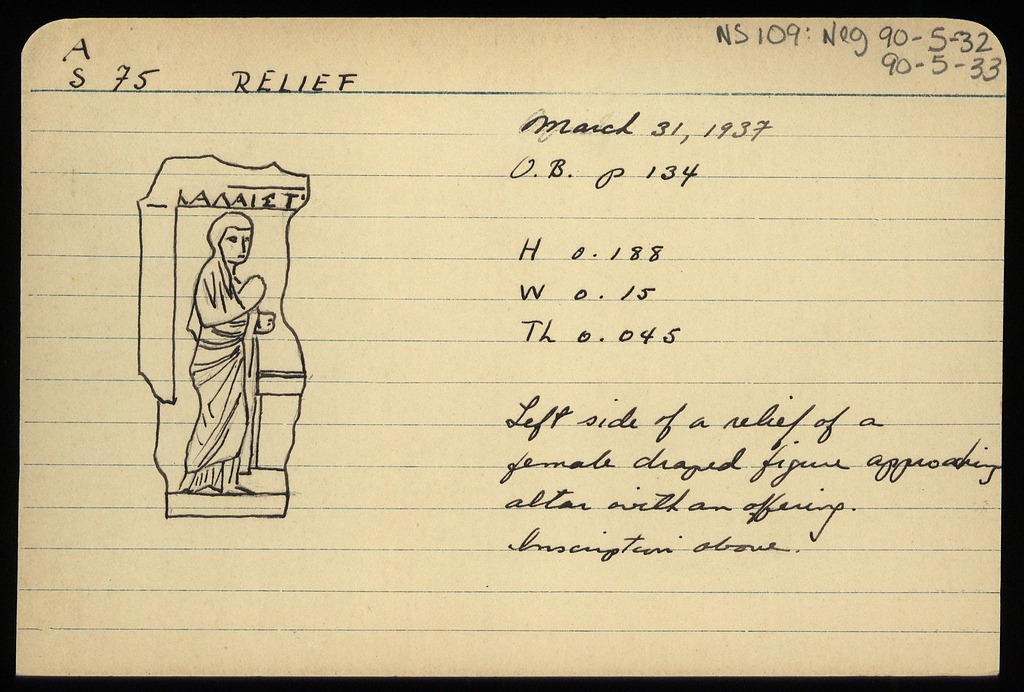 NS 109: Neg 90-5-32
90-5-33
A
S 75 RELIEF
March 31, 1937
O.B. p 134
ΚΑΛΛΙΣΤ
H 0.188
W 0.15
Th 0.045
Left side of a relief of a
female draped figure approaching
altar with an offering.
Inscription above.